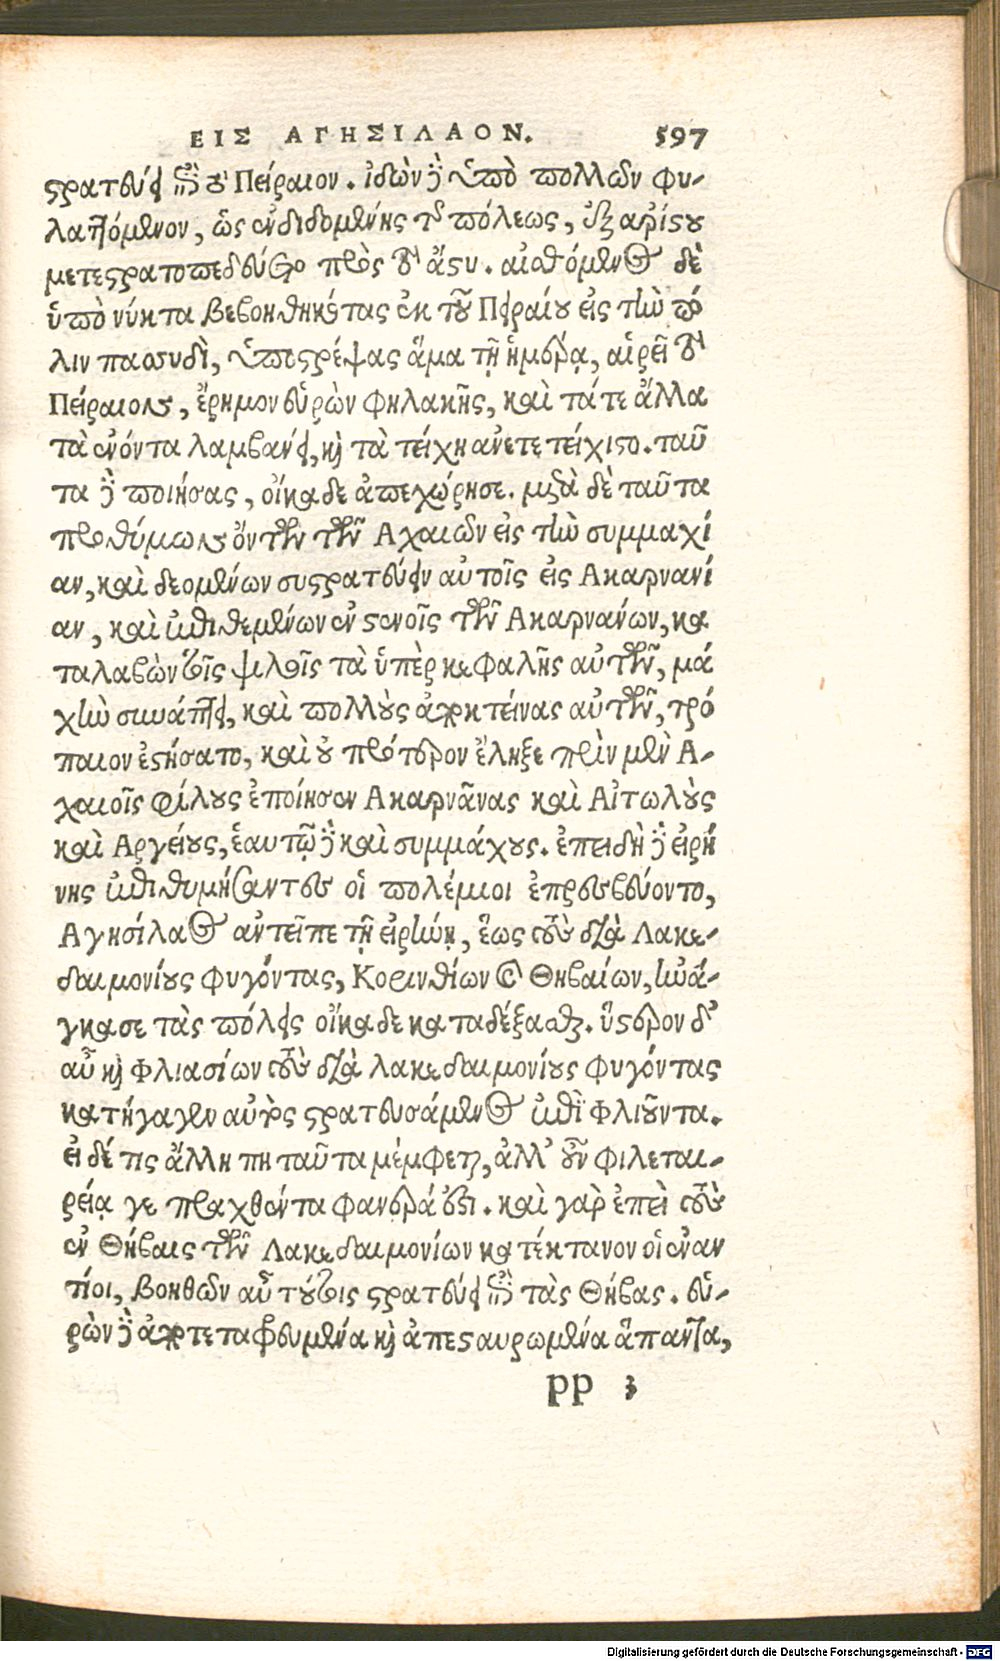 ΕΙΣ ΑΓΗΣΙΛΑΟΝ. 597
στρατεύει ἐπὶ τὸ Πείραιον. ἰδὼν δὲ ὑπὸ πολλῶν φυ-
λαττόμενον, ὡς ἐνδιδομένης τῆς πόλεως, ἐξ ἀρίστου
μετεστρατοπεδεύσατο πρὸς τὸ ἄστυ. αἰσθόμενος δὲ
ὑπὸ νύκτα βεβοηθηκότας ἐκ τοῦ Πειραίου εἰς τὴν πό
λιν πασσυδὶ, ὑποστρέψας ἅμα τῇ ἡμέρᾳ, αἱρεῖ τὸ
Πείραιον, ἔρημον εὑρὼν φηλακῆς, καὶ τά τε ἄλλα
τὰ ἐνόντα λαμβάνει, καὶ τὰ τείχη ἀνετετείχιστο. ταῦ
τα δὲ ποιήσας, οἴκαδε ἀπεχώρησε. μετὰ δὲ ταῦτα
προθύμων ὄντων τῶν Αχαιῶν εἰς τὴν συμμαχί
αν, καὶ δεομένων συστρατεύειν αὐτοῖς εἰς Ακαρνανί
αν, καὶ ἐπιθεμένων ἐν στενοῖς τῶν Ακαρνάνων, κα
ταλαβὼν τοῖς ψιλοῖς τὰ ὑπὲρ κεφαλῆς αὐτῶν, μά
χην συνάπτει, καὶ πολλοὺς ἀποκτείνας αὐτῶν, τρό
παιον ἐστήσατο, καὶ οὐ πρότερον ἔληξε πρὶν μὲν Α-
χαιοῖς φίλους ἐποίησεν Ακαρνᾶνας καὶ Αἰτωλοὺς
καὶ Αργείους, ἑαυτῷ δὲ καὶ συμμάχους. ἐπειδὴ δὲ εἰρή
νης ἐπιθυμήσαντες οἱ πολέμιοι ἐπρεσβεύοντο,
Αγησίλαος ἀντεῖπε τῇ εἰρήνῃ, ἕως τοὺς διὰ Λακε-
δαιμονίους φυγόντας, Κορινθίων καὶ Θηβαίων, ἠνά-
γκασε τὰς πόλεις οἴκαδε καταδέξασθαι. ὕστερον δ'
αὖ καὶ Φλιασίων τοὺς διὰ λακεδαιμονίους φυγόντας
κατήγαγεν αὐτὸς στρατευσάμενος ἐπὶ Φλιοῦντα.
εἰ δέ τις ἄλλῃ πη ταῦτα μέμφεται, ἀλλ' οὖν φιλεται-
ρείᾳ γε πραχθέντα φανερά ἐστι. καὶ γὰρ ἐπεὶ τοὺς
ἐν Θήβαις τῶν Λακεδαιμονίων κατέκτανον οἱ ἐναν
τίοι, βοηθῶν αὖ τούτοις στρατεύει ἐπὶ τὰς Θήβας. εὑ-
ρὼν δὲ ἀποτεταφρευμένα καὶ ἀπεσταυρωμένα ἅπαντα,
pp 3
Digitalisierung gefördert durch die Deutsche Forschungsgemeinschaft - DFG